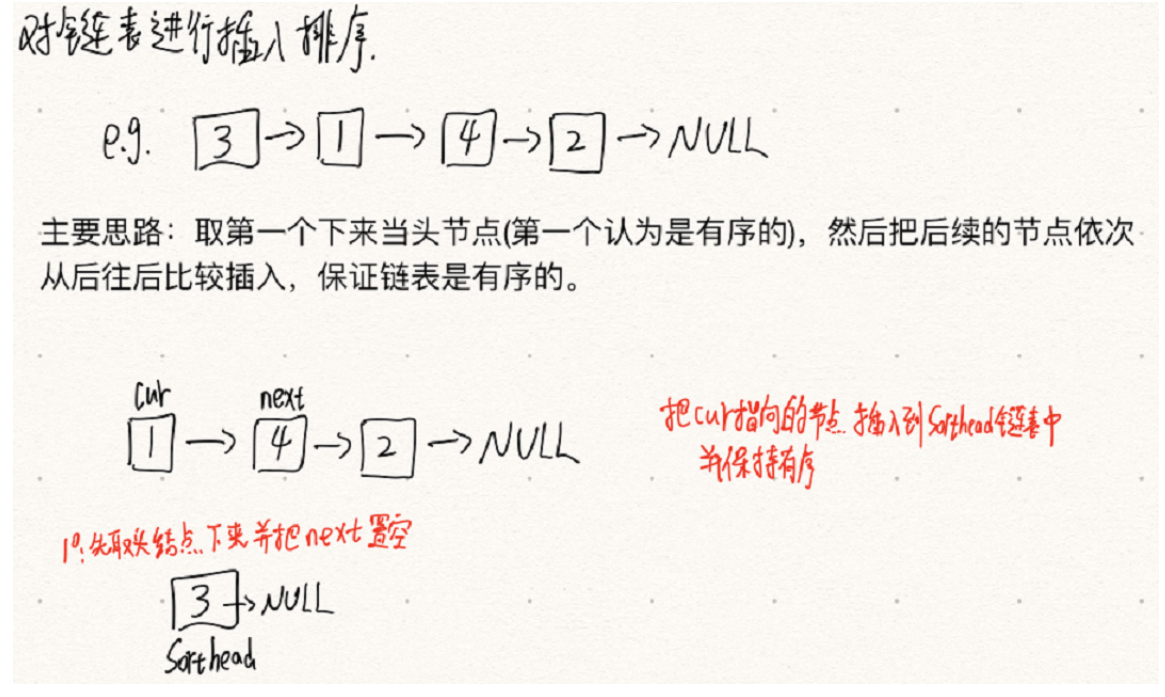 对链表进行插入排序.
e.g. 3 → 1 → 4 → 2 → NULL
主要思路：取第一个下来当头节点(第一个认为是有序的)，然后把后续的节点依次
从后往后比较插入，保证链表是有序的。
cur next
1 → 4 → 2 → NULL
把cur指向的节点插入到Sorthead链表中
并保持有序
1°:先取头结点下来并把next置空
3 → NULL
Sorthead